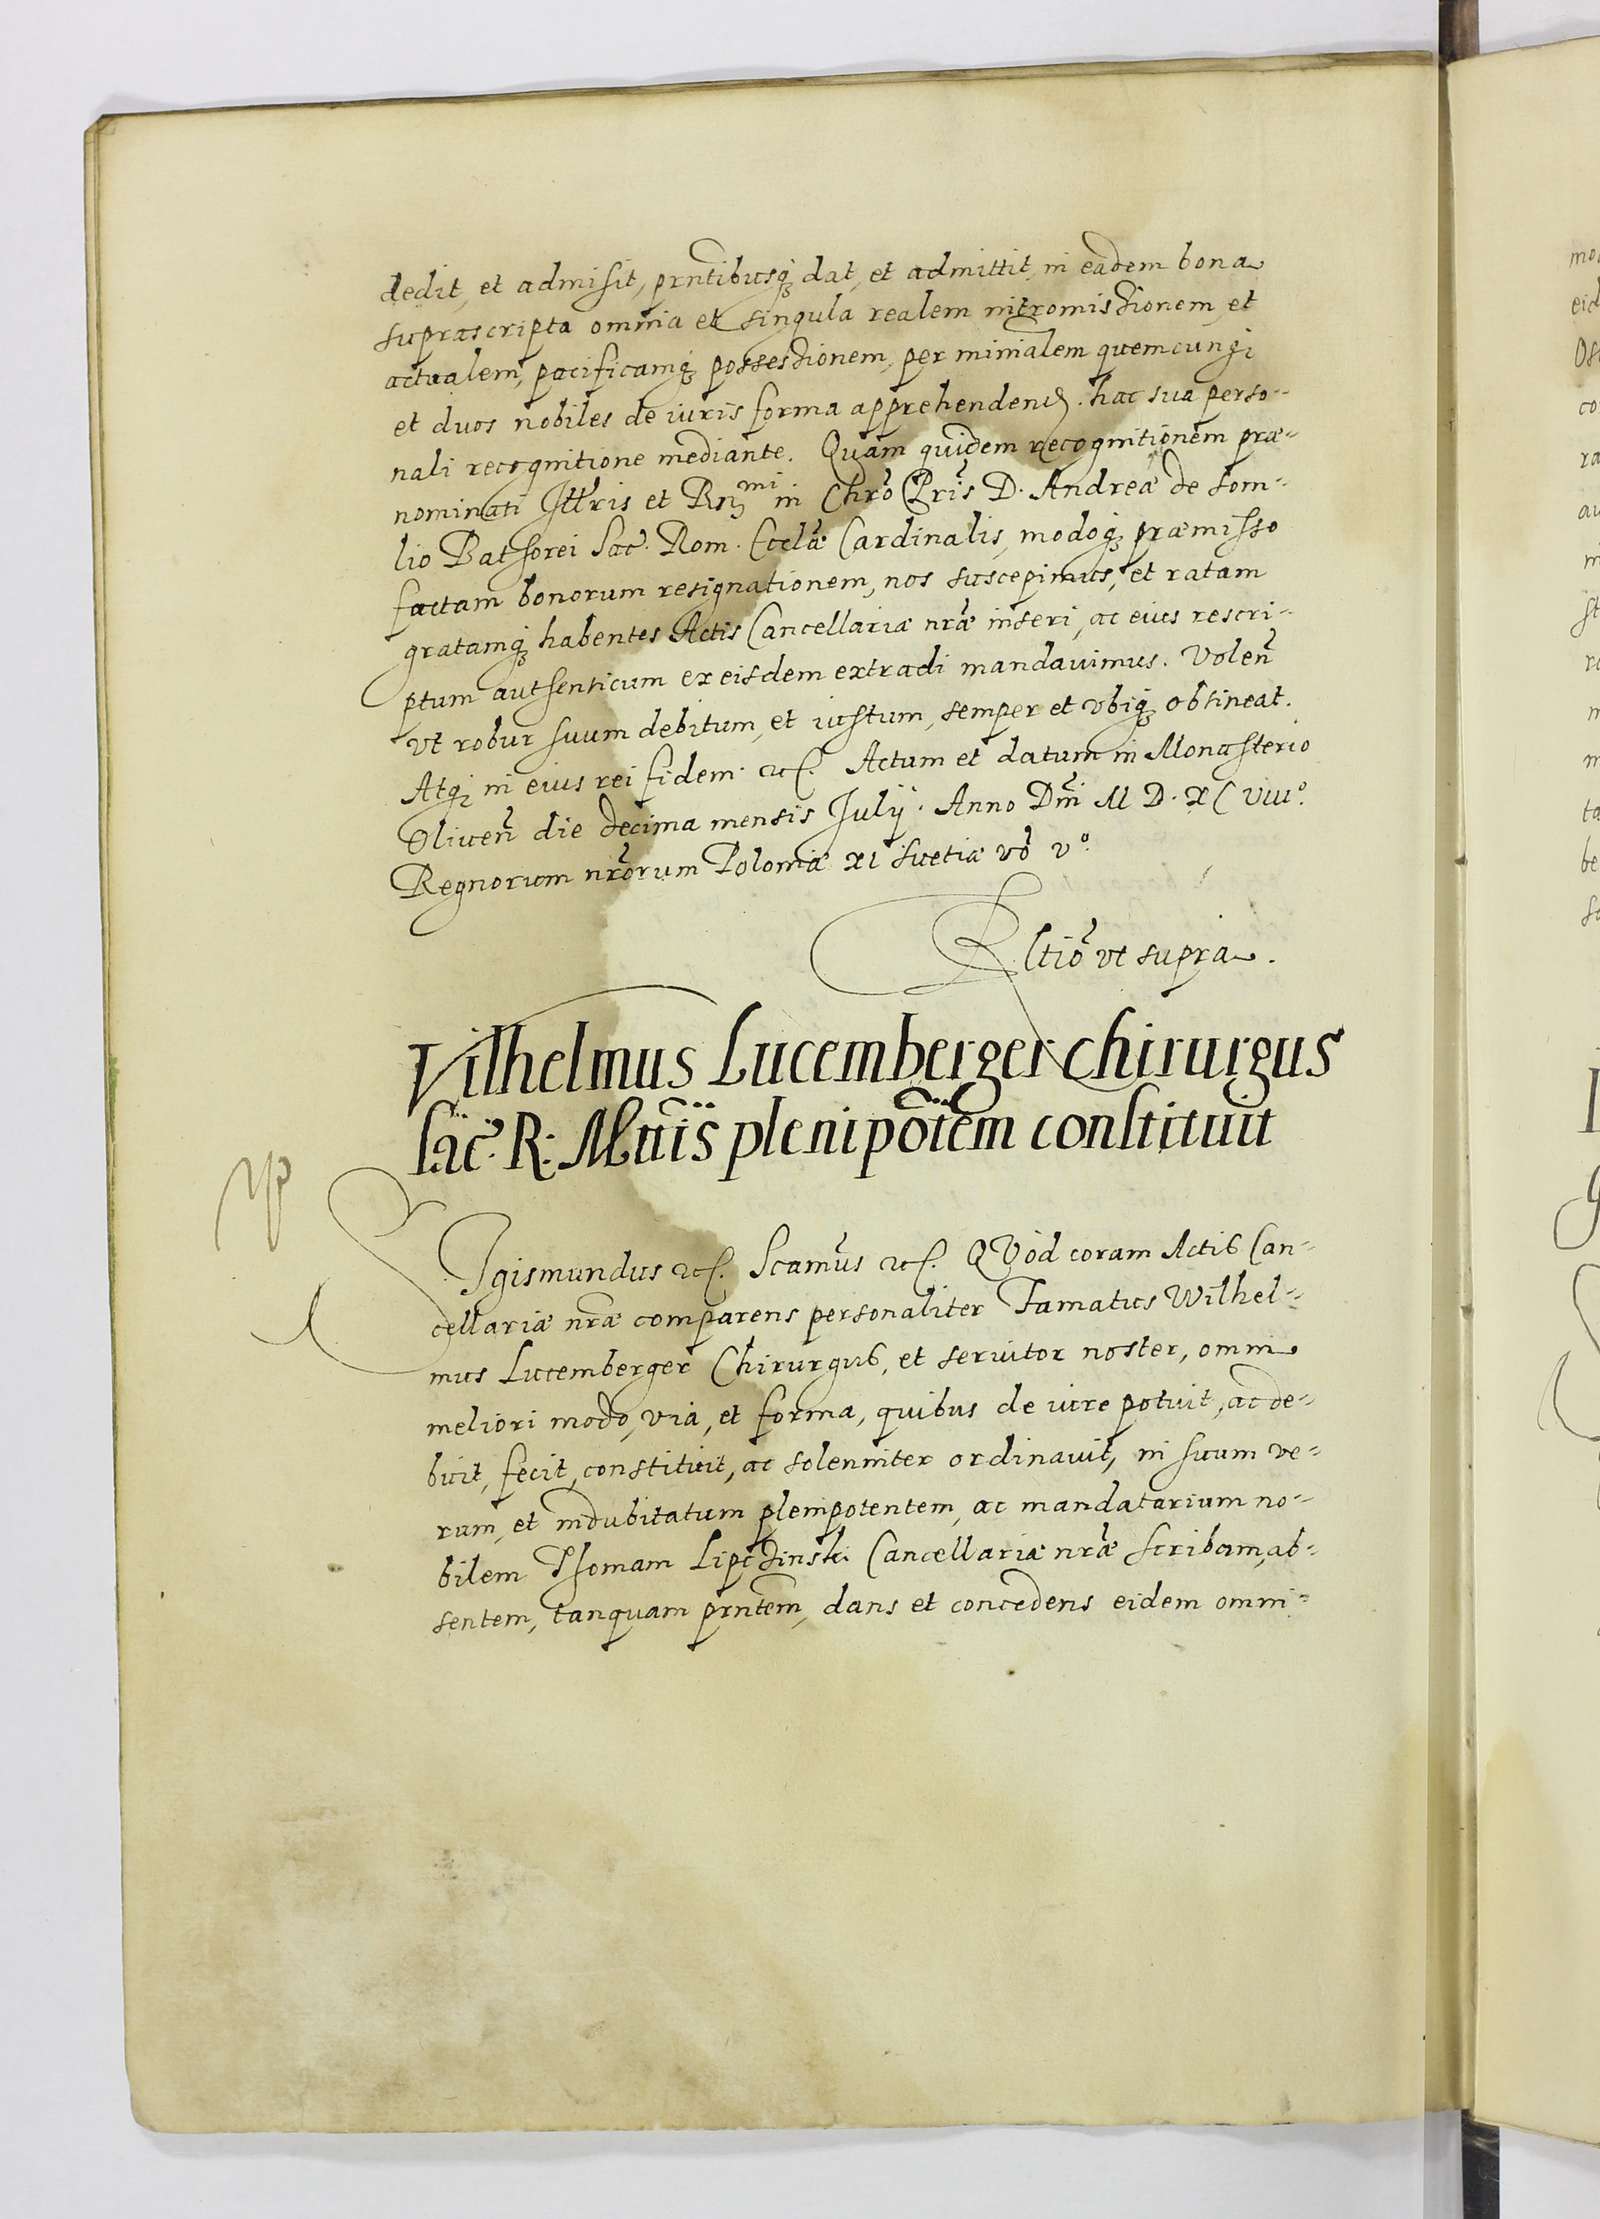 dedit, et admisit, prntibusq; dat, et admittit, in eadem bona
suprascripta omnia et singula realem intromissionem, et
actualem, pacificamq; possessionem, per minialem quemcunq;
et duos nobiles de iuris forma apprehenden. hac sua perso-
nali recognitione mediante. Quam quidem recognitionem præ-
nominati Illris et Rsmi in Chro Pris D. Andreæ de Som-
lio Bathorei Sac. Rom. Ecclæ Cardinalis, modoq; præmisso
factam bonorum resignationem, nos suscepimus, et ratam
gratamq; habentes Actis Cancellariæ nræ inseri, ac eius rescri-
ptum authenticum ex eisdem extradi mandavimus. Volen
vt robur suum debitum, et iustum, semper et vbiq; obtineat.
Atq; in eius rei fidem. etc. Actum et datum in Monasterio
Oliven die decima mensis Julij. Anno Dni M D. XC viiio.
Regnorum nrorum Poloniæ xi Suetiæ vo vo.
Rltio vt supra.
Vilhelmus Lucemberger chirurgus
Sac. R: Mttis plenipotem constituit
Sigismundus etc. Scamus etc. QVod coram Actis Can-
cellariæ nræ comparens personaliter Famatus Wilhel-
mus Lucemberger Chirurgus, et servitor noster, omni
meliori modo, via, et forma, quibus de iure potuit, ac de-
buit, fecit, constituit, ac solenniter ordinavit, in suum ve-
rum, et indubitatum plenipotentem, ac mandatarium no-
bilem Thomam Lipczinski Cancellariæ nræ scribam, ab-
sentem, tanquam prntem, dans et concedens eidem omni-